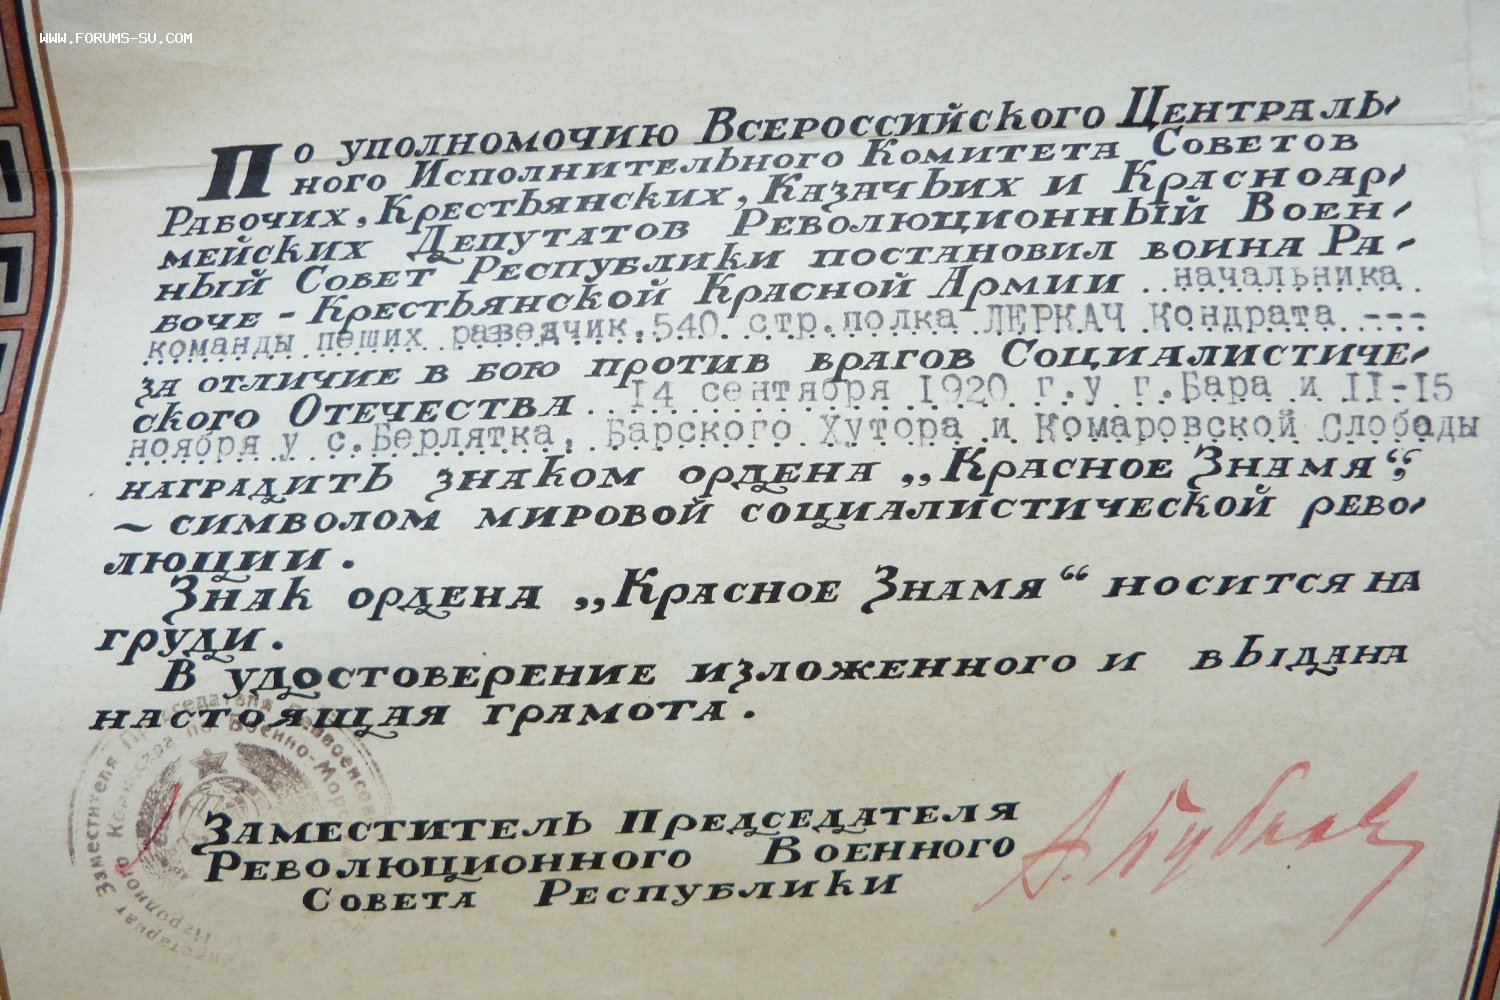 WWW.FORUMS-SU.COM
По уполномочию Всероссийского Централь-
ного Исполнительного Комитета Советов
Рабочих, Крестьянских, Казачьих и Красноар-
мейских Депутатов Революционный Воен-
ный Совет Республики постановил воина Ра-
боче-Крестьянской Красной Армии начальника
команды пеших разведчик. 540 стр. полка ДЕРКАЧ Кондрата ---
за отличие в бою против врагов Социалистиче-
ского Отечества 14 сентября 1920 г. у г. Бара и 11-15
ноября у с. Берлятка, Барского Хутора и Комаровской Слободы
наградить знаком ордена „Красное Знамя“,
~ символом мировой социалистической рево-
люции.
Знак ордена „Красное Знамя“ носится на
груди.
В удостоверение изложенного и выдана
настоящая грамота.
Заместитель Председателя
Революционного Военного
Совета Республики
А. Бубнов
Заместителя Председателя Реввоенсов
Народного Комиссара по Военно-Мор